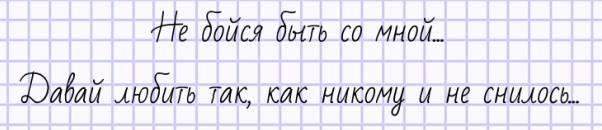 Не бойся быть со мной...
Давай любить так, как никому и не снилось...